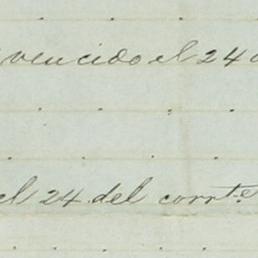 vencido el 24
el 24 del corrte